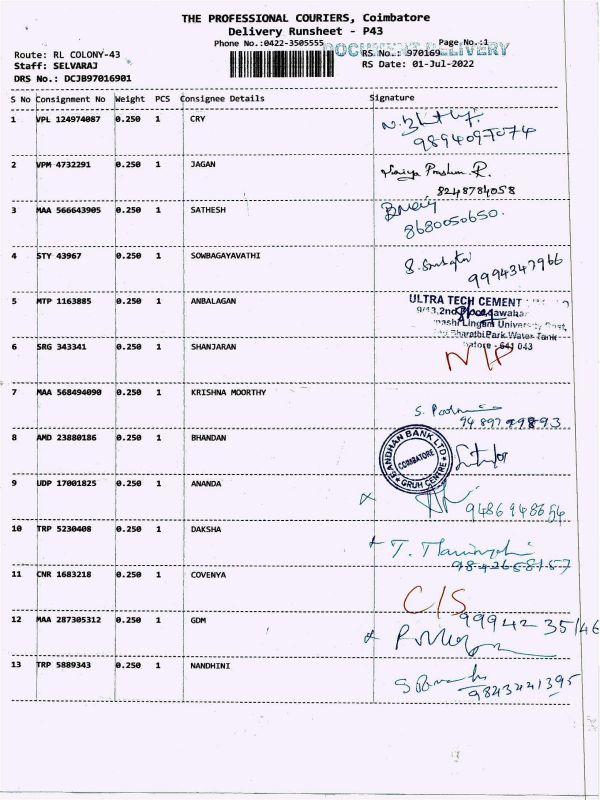 THE PROFESSIONAL COURIERS, Coimbatore
Delivery Runsheet - P43
Phone No.:0422-3505555
Page No.:1
DOCUMENT DELIVERY
Route: RL COLONY-43
RS No.: 970169
Staff: SELVARAJ
RS Date: 01-Jul-2022
DRS No.: DCJB97016901
S No Consignment No Weight PCS Consignee Details Signature
1 VPL 124974087 0.250 1 CRY
9894097074
2 VPM 4732291 0.250 1 JAGAN
8248784058
3 MAA 566643905 0.250 1 SATHESH
8680050650.
4 STY 43967 0.250 1 SOWBAGAYAVATHI
9994347966
5 MTP 1163885 0.250 1 ANBALAGAN
ULTRA TECH CEMENT
9/13,2nd Floor, Jawahar
Lingam University Post,
Bharathi Park Water Tank
641 043
6 SRG 343341 0.250 1 SHANJARAN N/P
7 MAA 568494090 0.250 1 KRISHNA MOORTHY
8 AMD 23880186 0.250 1 BHANDAN
BANDHAN BANK LTD
COIMBATORE
GRUH CENTRE
9 UDP 17001825 0.250 1 ANANDA
9486948654
10 TRP 5230408 0.250 1 DAKSHA
9842658157
11 CNR 1683218 0.250 1 COVENYA C/S
12 MAA 287305312 0.250 1 GDM
99942 35146
13 TRP 5889343 0.250 1 NANDHINI
9843241395